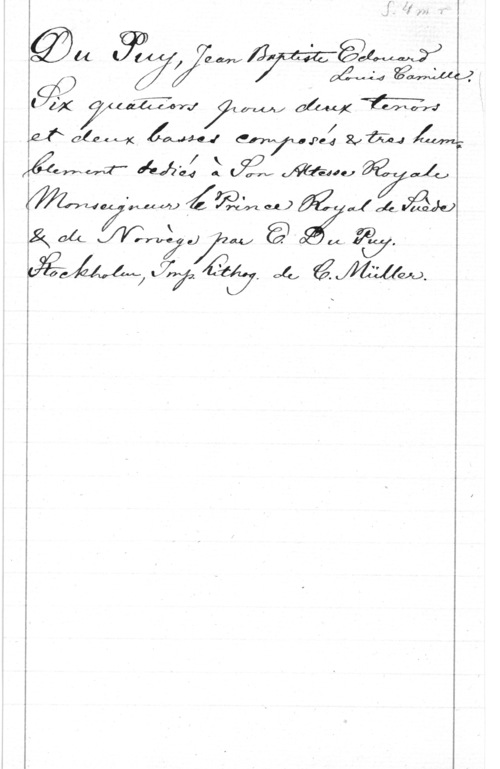 S. 4 m r
Du Puy, Jean Baptiste Edouard
Louis Camille.
Six quatuors pour deux tenors
et deux basses composés & tres hum-
blement dediés à Son Altesse Royale
Monseigneur le Prince Royal de Suède
& de Norvège par E. Du Puy.
Stockholm, Imp. Lithog. de C. Müller.